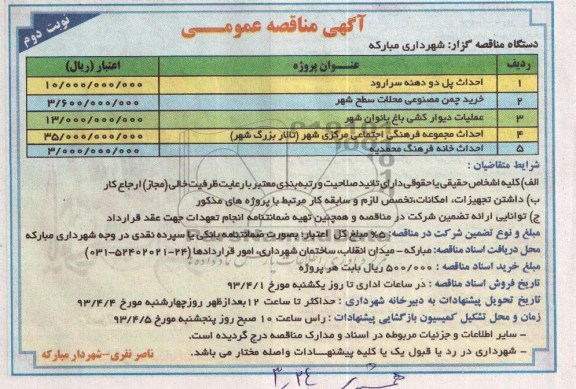 آگهی مناقصه عمومـــی
نوبت دوم
دستگاه مناقصه گزار: شهرداری مبارکه
ردیف عنـــوان پروژه اعتبار (ریال)
۱ احداث پل دو دهنه سرارود ۱۰/۰۰۰/۰۰۰/۰۰۰
۲ خرید چمن مصنوعی محلات سطح شهر ۳/۶۰۰/۰۰۰/۰۰۰
۳ عملیات دیوار کشی باغ بانوان شهر ۱۳/۰۰۰/۰۰۰/۰۰۰
۴ احداث مجموعه فرهنگی اجتماعی مرکزی شهر (تالار بزرگ شهر) ۳۵/۰۰۰/۰۰۰/۰۰۰
۵ احداث خانه فرهنگ محمدیه ۳/۰۰۰/۰۰۰/۰۰۰
شرایط متقاضیان :
الف) کلیه اشخاص حقیقی یا حقوقی دارای تائید صلاحیت و رتبه بندی معتبر با رعایت ظرفیت خالی (مجاز) ارجاع کار
ب) داشتن تجهیزات، امکانات،تخصص لازم و سابقه کار مرتبط با پروژه های مذکور
ج) توانایی ارائه تضمین شرکت در مناقصه و همچنین تهیه ضمانتنامه انجام تعهدات جهت عقد قرارداد
مبلغ و نوع تضمین شرکت در مناقصه: ۵% مبلغ کل اعتبار؛ بصورت ضمانتنامه بانکی یا سپرده نقدی در وجه شهرداری مبارکه
محل دریافت اسناد مناقصه: مبارکه - میدان انقلاب، ساختمان شهرداری، امور قراردادها (۲۴-۵۲۴۰۲۰۲۱-۰۳۱)
مبلغ خرید اسناد مناقصه : ۵۰۰/۰۰۰ ریال بابت هر پروژه
تاریخ فروش اسناد مناقصه : در ساعات اداری تا روز یکشنبه مورخ ۹۳/۴/۱
تاریخ تحویل پیشنهادات به دبیرخانه شهرداری : حداکثر تا ساعت ۱۲ بعدازظهر روزچهارشنبه مورخ ۹۳/۴/۴
زمان و محل تشکیل کمیسیون بازگشایی پیشنهادات : راس ساعت ۱۰ صبح روز پنجشنبه مورخ ۹۳/۴/۵
- سایر اطلاعات و جزئیات مربوطه در اسناد و مدارک مناقصه درج گردیده است.
- شهرداری در رد یا قبول یک یا کلیه پیشنهـــادات واصله مختار می باشد.
ناصر نفری-شهردار مبارکه